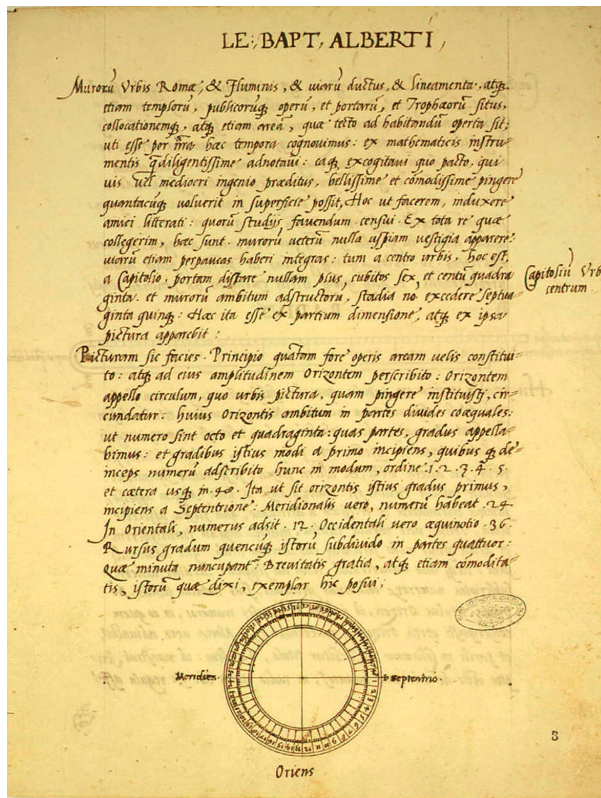 LE. BAPT, ALBERTI,
Murorũ Urbis Romæ, & Fluminis, & viarũ ductus, & lineamenta, atq;
etiam templorũ, publicorũq; operũ, et portarũ, et Trophæorũ situs,
collocationemq;, atq; etiam areã, quæ tecto ad habitandũ operta sit;
uti esse per nr̃a hæc tempora cognouimus: ex mathematicis instru-
mentis q̃diligentissime adnotaui: eaq; excogitaui quo pacto, qui
uis uel mediocri ingenio præditus, bellissime et cõmodissime pingere
quantacũq; voluerit in superficie possit, Hoc ut facerem, induxere
amici litterati: quorũ studijs fauendum censui. Ex tota re quæ
collegerim, hæc sunt. murorũ veterũ nulla uspiam vestigia apparere:
viarũ etiam perpaucas haberi integras: tum a centro urbis, hoc est,
a Capitolio, portam distare nullam plus, cubitos sex, et centũ quadra
ginta. et murorũ ambitum adstructorũ, stadia no excedere septua-
ginta quinq;: Hæc ita esse ex partium dimensione, atq; ex ipsa
pictura apparebit:
Capitoliũ Urb
centrum.
Picturam sic facies. Principio quãtam fore operis aream velis constitui-
to: atq; ad eius amplitudinem Orizontem perscribito: Orizontem
appello circulum, quo urbis pictura, quam pingere instituisti, cir-
cundatur: huius Orizontis ambitum in partes diuides coæquales:
ut numero sint octo et quadraginta: quas partes, gradus appella-
bimus: et gradibus istius modi a primo incipiens, quibus q; de-
inceps numerũ adscribito hunc in modum, ordine .1. 2. 3. 4. 5.
et cætera usq; in .48. Ita ut sit orizontis istius gradus primus,
incipiens a Septentrione: Meridionalis vero, numerũ habeat .24.
In Orientali, numerus adsit .12. Occidentali vero æquinotio .36.
Rursus gradum quencũq; istorũ subdiuido in partes quattuor:
Quæ minuta nuncupant. Breuitatis gratia, atq; etiam cõmodita-
tis, istorũ quæ dixi, exemplar hic posui,
Meridies.
septentrio.
Oriens
8